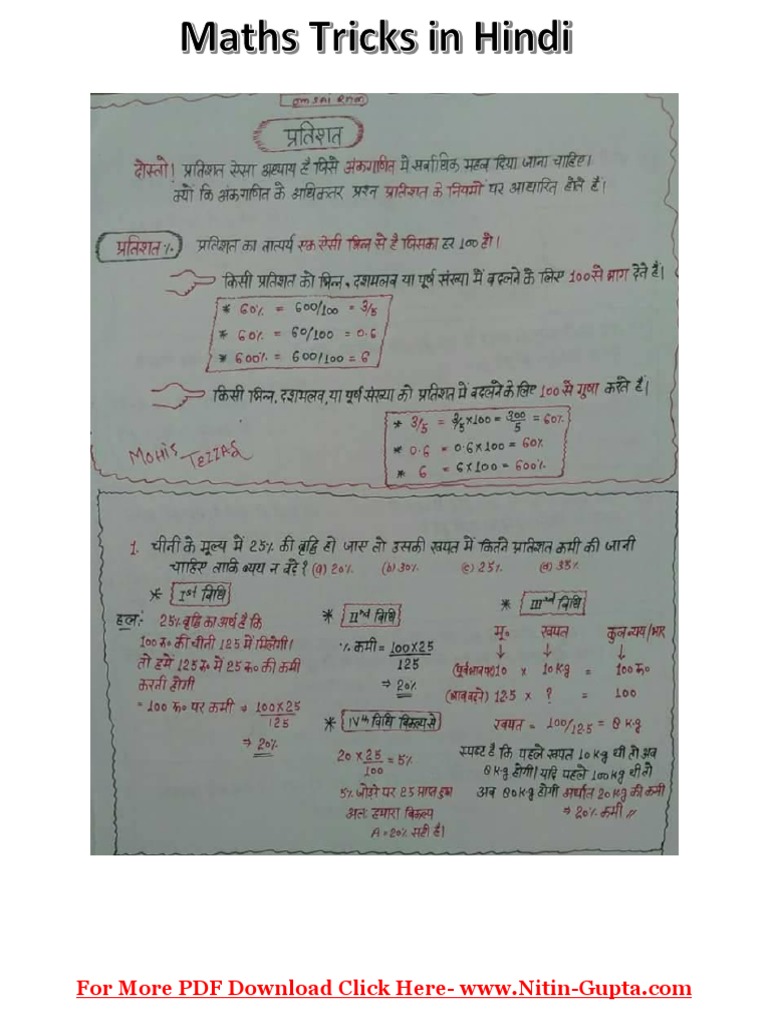 Maths Tricks in Hindi
प्रतिशत
दोस्तो! प्रतिशत ऐसा अध्याय है जिसे अंकगणित मे सर्वाधिक महत्व दिया जाना चाहिए।
क्यों कि अंकगणित के अधिकतर प्रश्न प्रतिशत के नियमों पर आधारित होते हैं।
प्रतिशत% प्रतिशत का तात्पर्य एक ऐसी भिन्न से है जिसका हर 100 हो।
किसी प्रतिशत को भिन्न, दशमलव या पूर्ण संख्या में बदलने के लिए 100 से भाग देते हैं।
* 60% = 600/100 = 3/5
* 60% = 60/100 = 0.6
* 600% = 600/100 = 6
किसी भिन्न, दशमलव, या पूर्ण संख्या को प्रतिशत में बदलने के लिए 100 से गुणा करते हैं।
* 3/5 = 3/5×100 = 300/5 = 60%
* 0.6 = 0.6×100 = 60%
* 6 = 6×100 = 600%
1. चीनी के मूल्य में 25% की वृद्धि हो जाए तो उसकी खपत में कितने प्रतिशत कमी की जानी
चाहिए ताकि व्यय न बढे? (a) 20% (b) 30% (c) 25% (d) 35%
* Ist विधि
हल:- 25% वृद्धि का अर्थ है कि
100 रु० की चीनी 125 में मिलेगी।
तो हमें 125 रु० में 25 रु० की कमी
करनी होगी
= 100 रु० पर कमी ⇒ 100×25/125
⇒ 20%
* IInd विधि
% कमी = 100×25/125
⇒ 20%
* IVth विधि विकल्प से
20 × 25/100 = 5%
5% जोड़ने पर 25 प्राप्त हुआ
अतः हमारा विकल्प
A = 20% सही है।
* IIIrd विधि
मू० खपत कुल व्यय/भार
↓ ↓ ↓
10 × 10 Kg = 100 रु०
12.5 × ? = 100
खपत = 100/12.5 = 8 K.g
स्पष्ट है कि पहले खपत 10 Kg थी तो अब
8 Kg होगी। यदि पहले 100 Kg थी तो
अब 80 Kg होगी अर्थात 20 Kg की कमी
⇒ 20% कमी
For More PDF Download Click Here- www.Nitin-Gupta.com